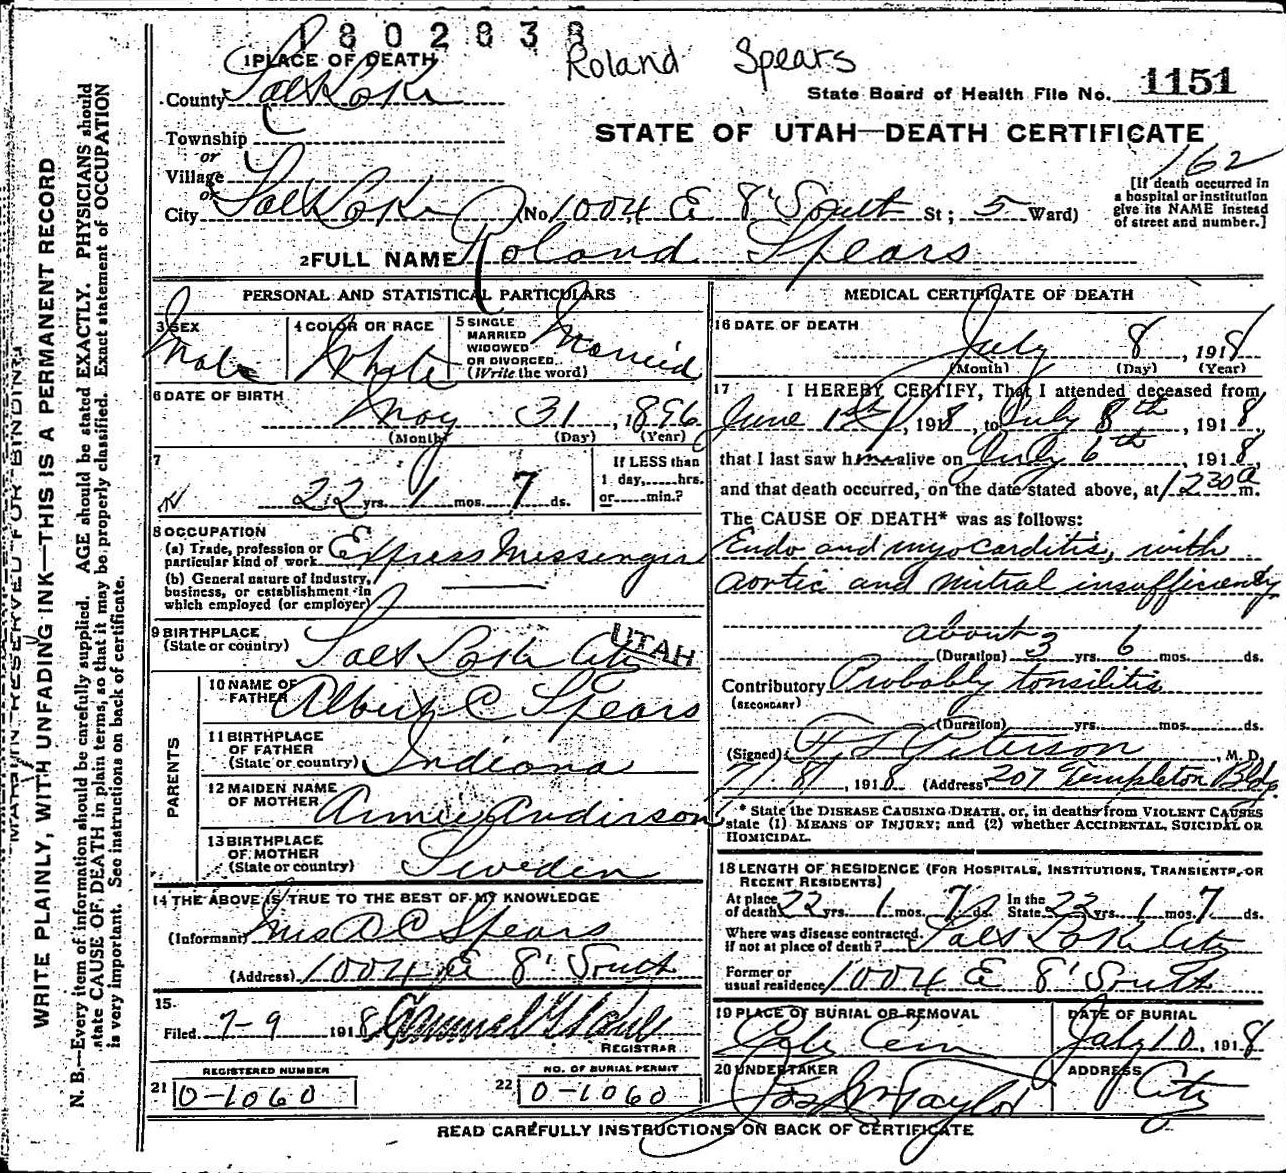 1802838
Roland Spears
1 PLACE OF DEATH
County Salt Lake
State Board of Health File No. 1151
Township
or
STATE OF UTAH—DEATH CERTIFICATE
Village
or
162
City Salt Lake (No 1004 E 8' South St; 5 Ward)
[If death occurred in
a hospital or institution
give its NAME instead
of street and number.]
2 FULL NAME Roland Spears
PERSONAL AND STATISTICAL PARTICULARS
3 SEX
Male
4 COLOR OR RACE
White
5 SINGLE
MARRIED
WIDOWED
OR DIVORCED
(Write the word)
Married
6 DATE OF BIRTH
May 31, 1896
(Month) (Day) (Year)
7
22 yrs. 1 mos. 7 ds.
If LESS than
1 day,......hrs.
or......min.?
8 OCCUPATION
(a) Trade, profession or
particular kind of work Express Messenger
(b) General nature of Industry,
business, or establishment in
which employed (or employer)
9 BIRTHPLACE
(State or country) Salt Lake City UTAH
PARENTS
10 NAME OF
FATHER Albert C Spears
11 BIRTHPLACE
OF FATHER
(State or country) Indiana
12 MAIDEN NAME
OF MOTHER Annie Anderson
13 BIRTHPLACE
OF MOTHER
(State or country) Sweden
14 THE ABOVE IS TRUE TO THE BEST OF MY KNOWLEDGE
(Informant) Mrs A C Spears
(Address) 1004 E 8' South
15
Filed 7-9 1918
REGISTRAR
REGISTERED NUMBER
21 0-1060
NO. OF BURIAL PERMIT
22 0-1060
MEDICAL CERTIFICATE OF DEATH
16 DATE OF DEATH
July 8, 1918
(Month) (Day) (Year)
17 I HEREBY CERTIFY, That I attended deceased from
June 1st, 1918, to July 8th, 1918,
that I last saw him alive on July 6th, 1918,
and that death occurred, on the date stated above, at 1230 a m.
The CAUSE OF DEATH* was as follows:
Endo and myocarditis, with
aortic and mitral insufficiency
about
(Duration) 3 yrs. 6 mos. ds.
Contributory Probably tonsilitis
(SECONDARY)
(Duration) yrs. mos. ds.
(Signed) F S Peterson, M. D.
7/8/, 1918 (Address) 207 Templeton Bldg.
* State the DISEASE CAUSING DEATH, or, in deaths from VIOLENT CAUSES
state (1) MEANS OF INJURY; and (2) whether ACCIDENTAL, SUICIDAL OR
HOMICIDAL.
18 LENGTH OF RESIDENCE (FOR HOSPITALS, INSTITUTIONS, TRANSIENTS, OR
RECENT RESIDENTS)
At place
of death 22 yrs. 1 mos. 7 ds.
In the
State 22 yrs. 1 mos. 7 ds.
Where was disease contracted,
if not at place of death? Salt Lake City
Former or
usual residence 1004 E 8' South
19 PLACE OF BURIAL OR REMOVAL
City Cem
DATE OF BURIAL
July 10, 1918
20 UNDERTAKER
Jos Wm Taylor
ADDRESS
City
READ CAREFULLY INSTRUCTIONS ON BACK OF CERTIFICATE
MARGIN RESERVED FOR BINDING
WRITE PLAINLY, WITH UNFADING INK—THIS IS A PERMANENT RECORD
N. B.—Every item of information should be carefully supplied. AGE should be stated EXACTLY. PHYSICIANS should
state CAUSE OF DEATH in plain terms, so that it may be properly classified. Exact statement of OCCUPATION
is very important. See instructions on back of certificate.